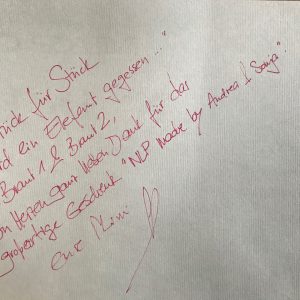 Stück für Stück
wird ein Elefant gegessen..."
Braut 1 & Braut 2,
von Herzen ganz lieben Dank für das
großartige Geschenk "NLP Made by Andrea & Sonja".
eure Mimi